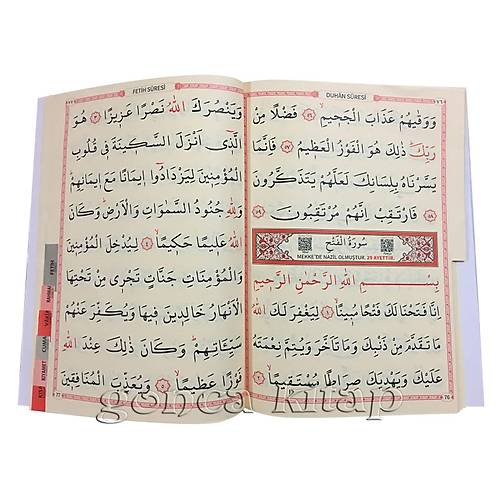 DUHÂN SÛRESİ
وَوَقٰيهُمْ عَذَابَ الْجَحٖيمِۙ ﴿٥٦﴾ فَضْلًا مِنْ
رَبِّكَۜ ذٰلِكَ هُوَ الْفَوْزُ الْعَظٖيمُ ﴿٥٧﴾ فَاِنَّمَا
يَسَّرْنَاهُ بِلِسَانِكَ لَعَلَّهُمْ يَتَذَكَّرُونَ
﴿٥٨﴾ فَارْتَقِبْ اِنَّهُمْ مُرْتَقِبُونَ ﴿٥٩﴾
سُورَةُ الْفَتْحِ
MEKKE'DE NAZİL OLMUŞTUR. 29 AYETTİR.
بِسْمِ اللّٰهِ الرَّحْمٰنِ الرَّحٖيمِ
اِنَّا فَتَحْنَا لَكَ فَتْحًا مُبٖينًاۙ ﴿١﴾ لِيَغْفِرَ لَكَ اللّٰهُ
مَا تَقَدَّمَ مِنْ ذَنْبِكَ وَمَا تَاَخَّرَ وَيُتِمَّ نِعْمَتَهُ
عَلَيْكَ وَيَهْدِيَكَ صِرَاطًا مُسْتَقٖيمًاۙ ﴿٢﴾
76
FETİH SÛRESİ
وَيَنْصُرَكَ اللّٰهُ نَصْرًا عَزٖيزًا ﴿٣﴾ هُوَ
الَّذٖٓي اَنْزَلَ السَّكٖينَةَ فٖي قُلُوبِ
الْمُؤْمِنٖينَ لِيَزْدَادُٓوا اٖيمَانًا مَعَ اٖيمَانِهِمْۜ
وَلِلّٰهِ جُنُودُ السَّمٰوَاتِ وَالْاَرْضِۜ وَكَانَ
اللّٰهُ عَلٖيمًا حَكٖيمًاۙ ﴿٤﴾ لِيُدْخِلَ الْمُؤْمِنٖينَ
وَالْمُؤْمِنَاتِ جَنَّاتٍ تَجْرٖي مِنْ تَحْتِهَا
الْاَنْهَارُ خَالِدٖينَ فٖيهَا وَيُكَفِّرَ عَنْهُمْ
سَيِّـَٔاتِهِمْۜ وَكَانَ ذٰلِكَ عِنْدَ اللّٰهِ
فَوْزًا عَظٖيمًاۙ ﴿٥﴾ وَيُعَذِّبَ الْمُنَافِقٖينَ
77
FETİH
RAHMAN
VÂKIA
CUMA
KIYAMET
gonca kitap